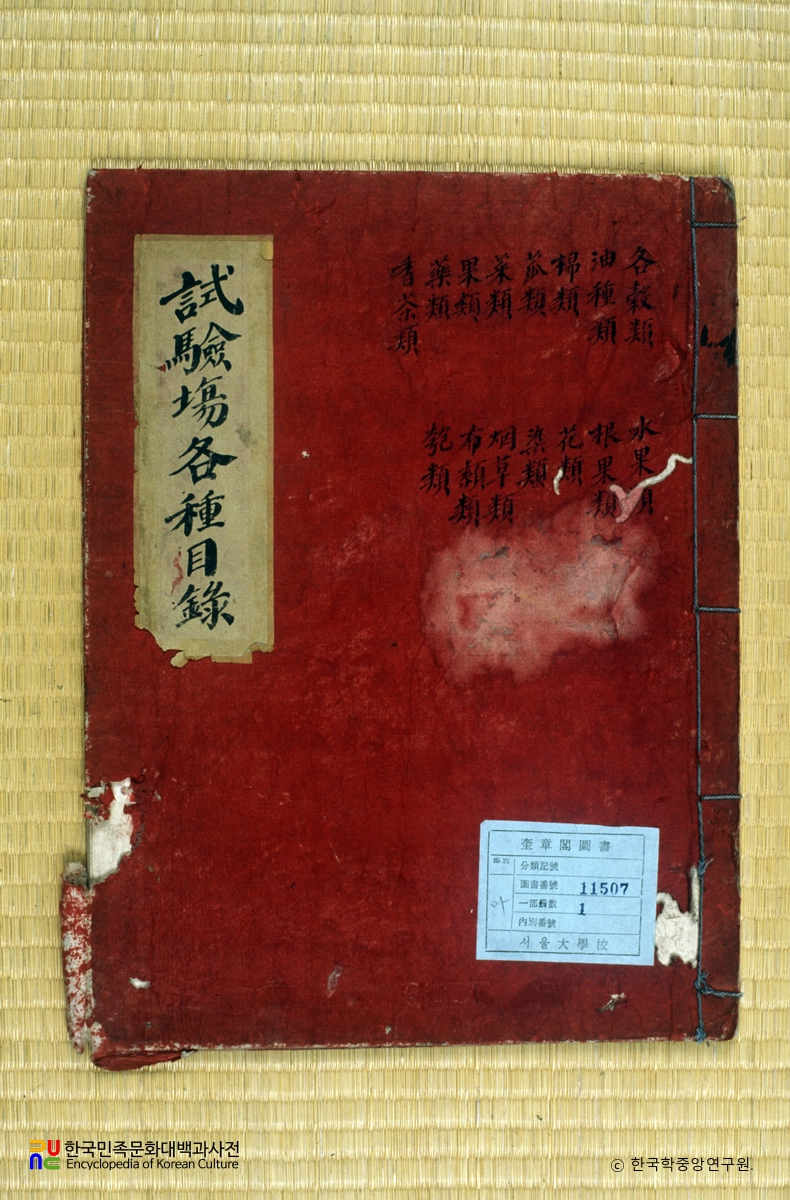 各穀類
油種類
棉類
苽類
菜類
果類
藥類
香茶類
水果類
根果類
花類
染類
烟草類
布類類
匏類
試驗塲各種目錄
奎章閣圖書
分類記號
圖書番號 11507
一部冊數 1
內別番號
서울大學校
한국민족문화대백과사전
Encyclopedia of Korean Culture
© 한국학중앙연구원